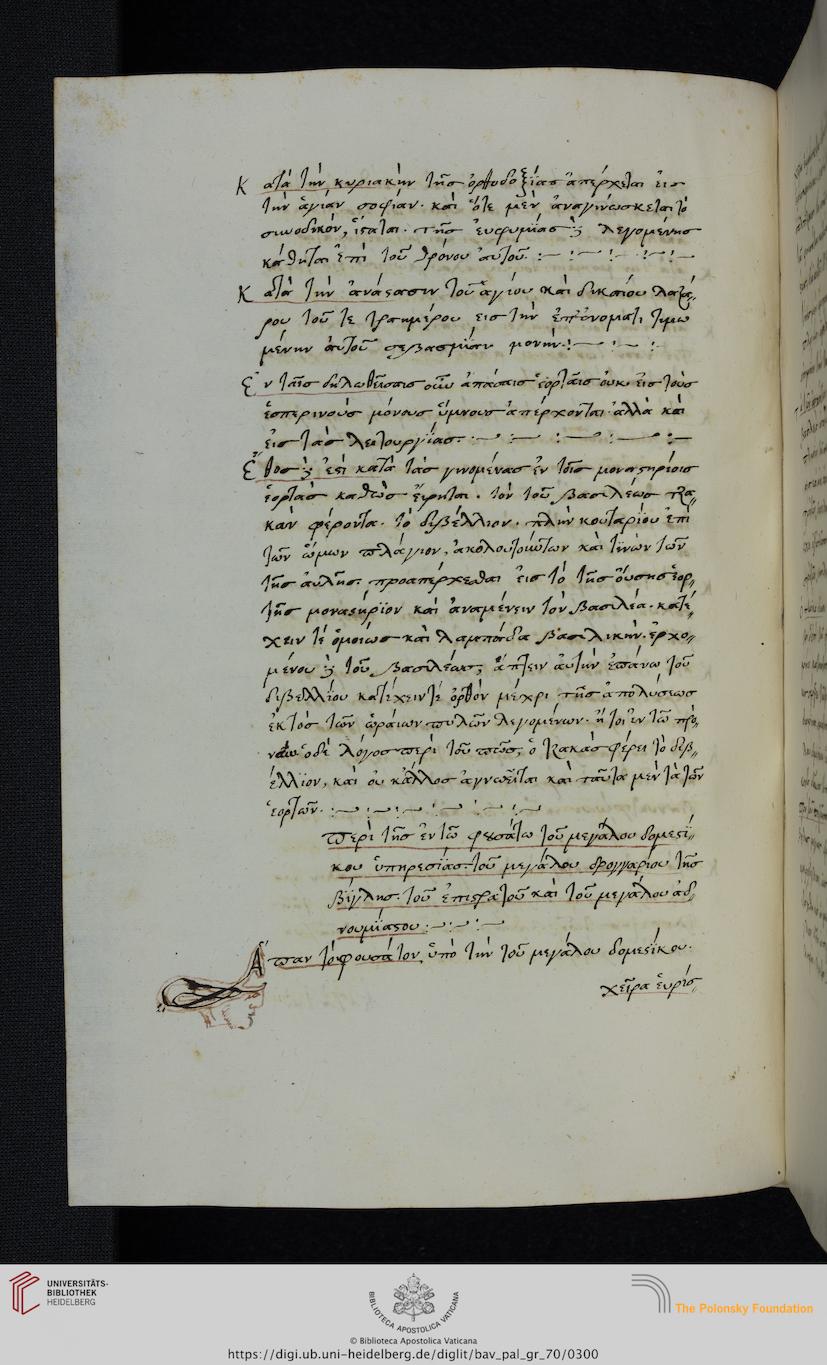 Κατὰ τὴν κυριακὴν τῆς ὀρθοδοξίας ἀπέρχεται εἰς
τὴν ἁγίαν σοφίαν. καὶ ὅτε μὲν ἀναγινώσκεται τὸ
συνοδικὸν, ἵσταται. τῆς εὐφημίας δὲ λεγομένης
κάθηται ἐπὶ τοῦ θρόνου αὐτοῦ.
Κατὰ τὴν ἀνάστασιν τοῦ ἁγίου καὶ δικαίου λαζά,,
ρου τοῦ τετραημέρου εἰς τὴν ἐπ' ὀνόματι τιμω
μένην αὐτοῦ σεβασμίαν μονήν.
Ἐν ταῖς δηλωθείσαις οὖν ἁπάσαις ἑορταῖς οὐκ εἰς τοὺς
ἑσπερινοὺς μόνους ὕμνους ἀπέρχονται. ἀλλὰ καὶ
εἰς τὰς λειτουργίας.
Ἔθος δὲ ἐστὶ κατὰ τὰς γινομένας ἐν τοῖς μοναστηρίοις
ἑορτὰς καθὼς εἴρηται. τὸν τοῦ βασιλέως τζα,,
κᾶν φέροντα. τὸ διβέλλιον. πλὴν κονταρίου ἐπὶ
τῶν ὤμων πλάγιον, ἀκολουθούντων καὶ τινῶν τῶν
τῆς αὐλῆς. προαπέρχεσθαι εἰς τὸ τῆς οὔσης ἑορ,,
τῆς μοναστήριον καὶ ἀναμένειν τὸν βασιλέα. κατέ,,
χειν τὲ ὁμοίως καὶ λαμπάδα βασιλικὴν. ἐρχο,,
μένου δὲ τοῦ βασιλέως, ἅπτειν αὐτὴν ἐπάνω τοῦ
διβελλίου κατέχειν τὲ ὀρθὸν μέχρι τῆς ἀπολύσεως
ἐκτὸς τῶν ὡραίων πυλῶν λεγομένων. ἤτοι ἐν τῶ προ,,
νάω ὁ δὲ λόγος περὶ τοῦ πῶς, ὁ τζακὰς φέρει τὸ διβ,,
έλλιον, καὶ οὐκ ἄλλος ἀγνοεῖται καὶ ταῦτα μὲν τὰ τῶν
ἑορτῶν.
Περὶ τῆς ἐν τῶ φουσάτω τοῦ μεγάλου δομεστί,,
κου ὑπηρεσίας. τοῦ μεγάλου δρουγγαρίου τῆς
βίγλης. τοῦ ἐπιστράτου καὶ τοῦ μεγάλου ἀδ,,
νουμίαστου
Ἅπαν τὸ φουσάτον ὑπὸ τὴν τοῦ μεγάλου δομεστίκου.
χεῖρα εὑρίσ,,
UNIVERSITÄTS-
BIBLIOTHEK
HEIDELBERG
BIBLIOTECA APOSTOLICA VATICANA
The Polonsky Foundation
© Biblioteca Apostolica Vaticana
https://digi.ub.uni-heidelberg.de/diglit/bav_pal_gr_70/0300